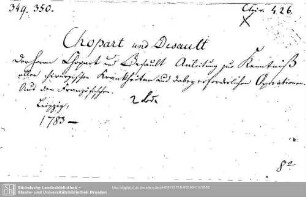 349. 350.
Chir. 426.
Chopart und Desault
der Herren Chopart und Desault Anleitung zur Kenntniß
aller chirurgischen Krankheiten und dabey erforderlichen Operationen.
Aus dem Französischen.
2 Bde
Leipzig,
1783 —
8°
Sächsische Landesbibliothek -
Staats- und Universitätsbibliothek Dresden